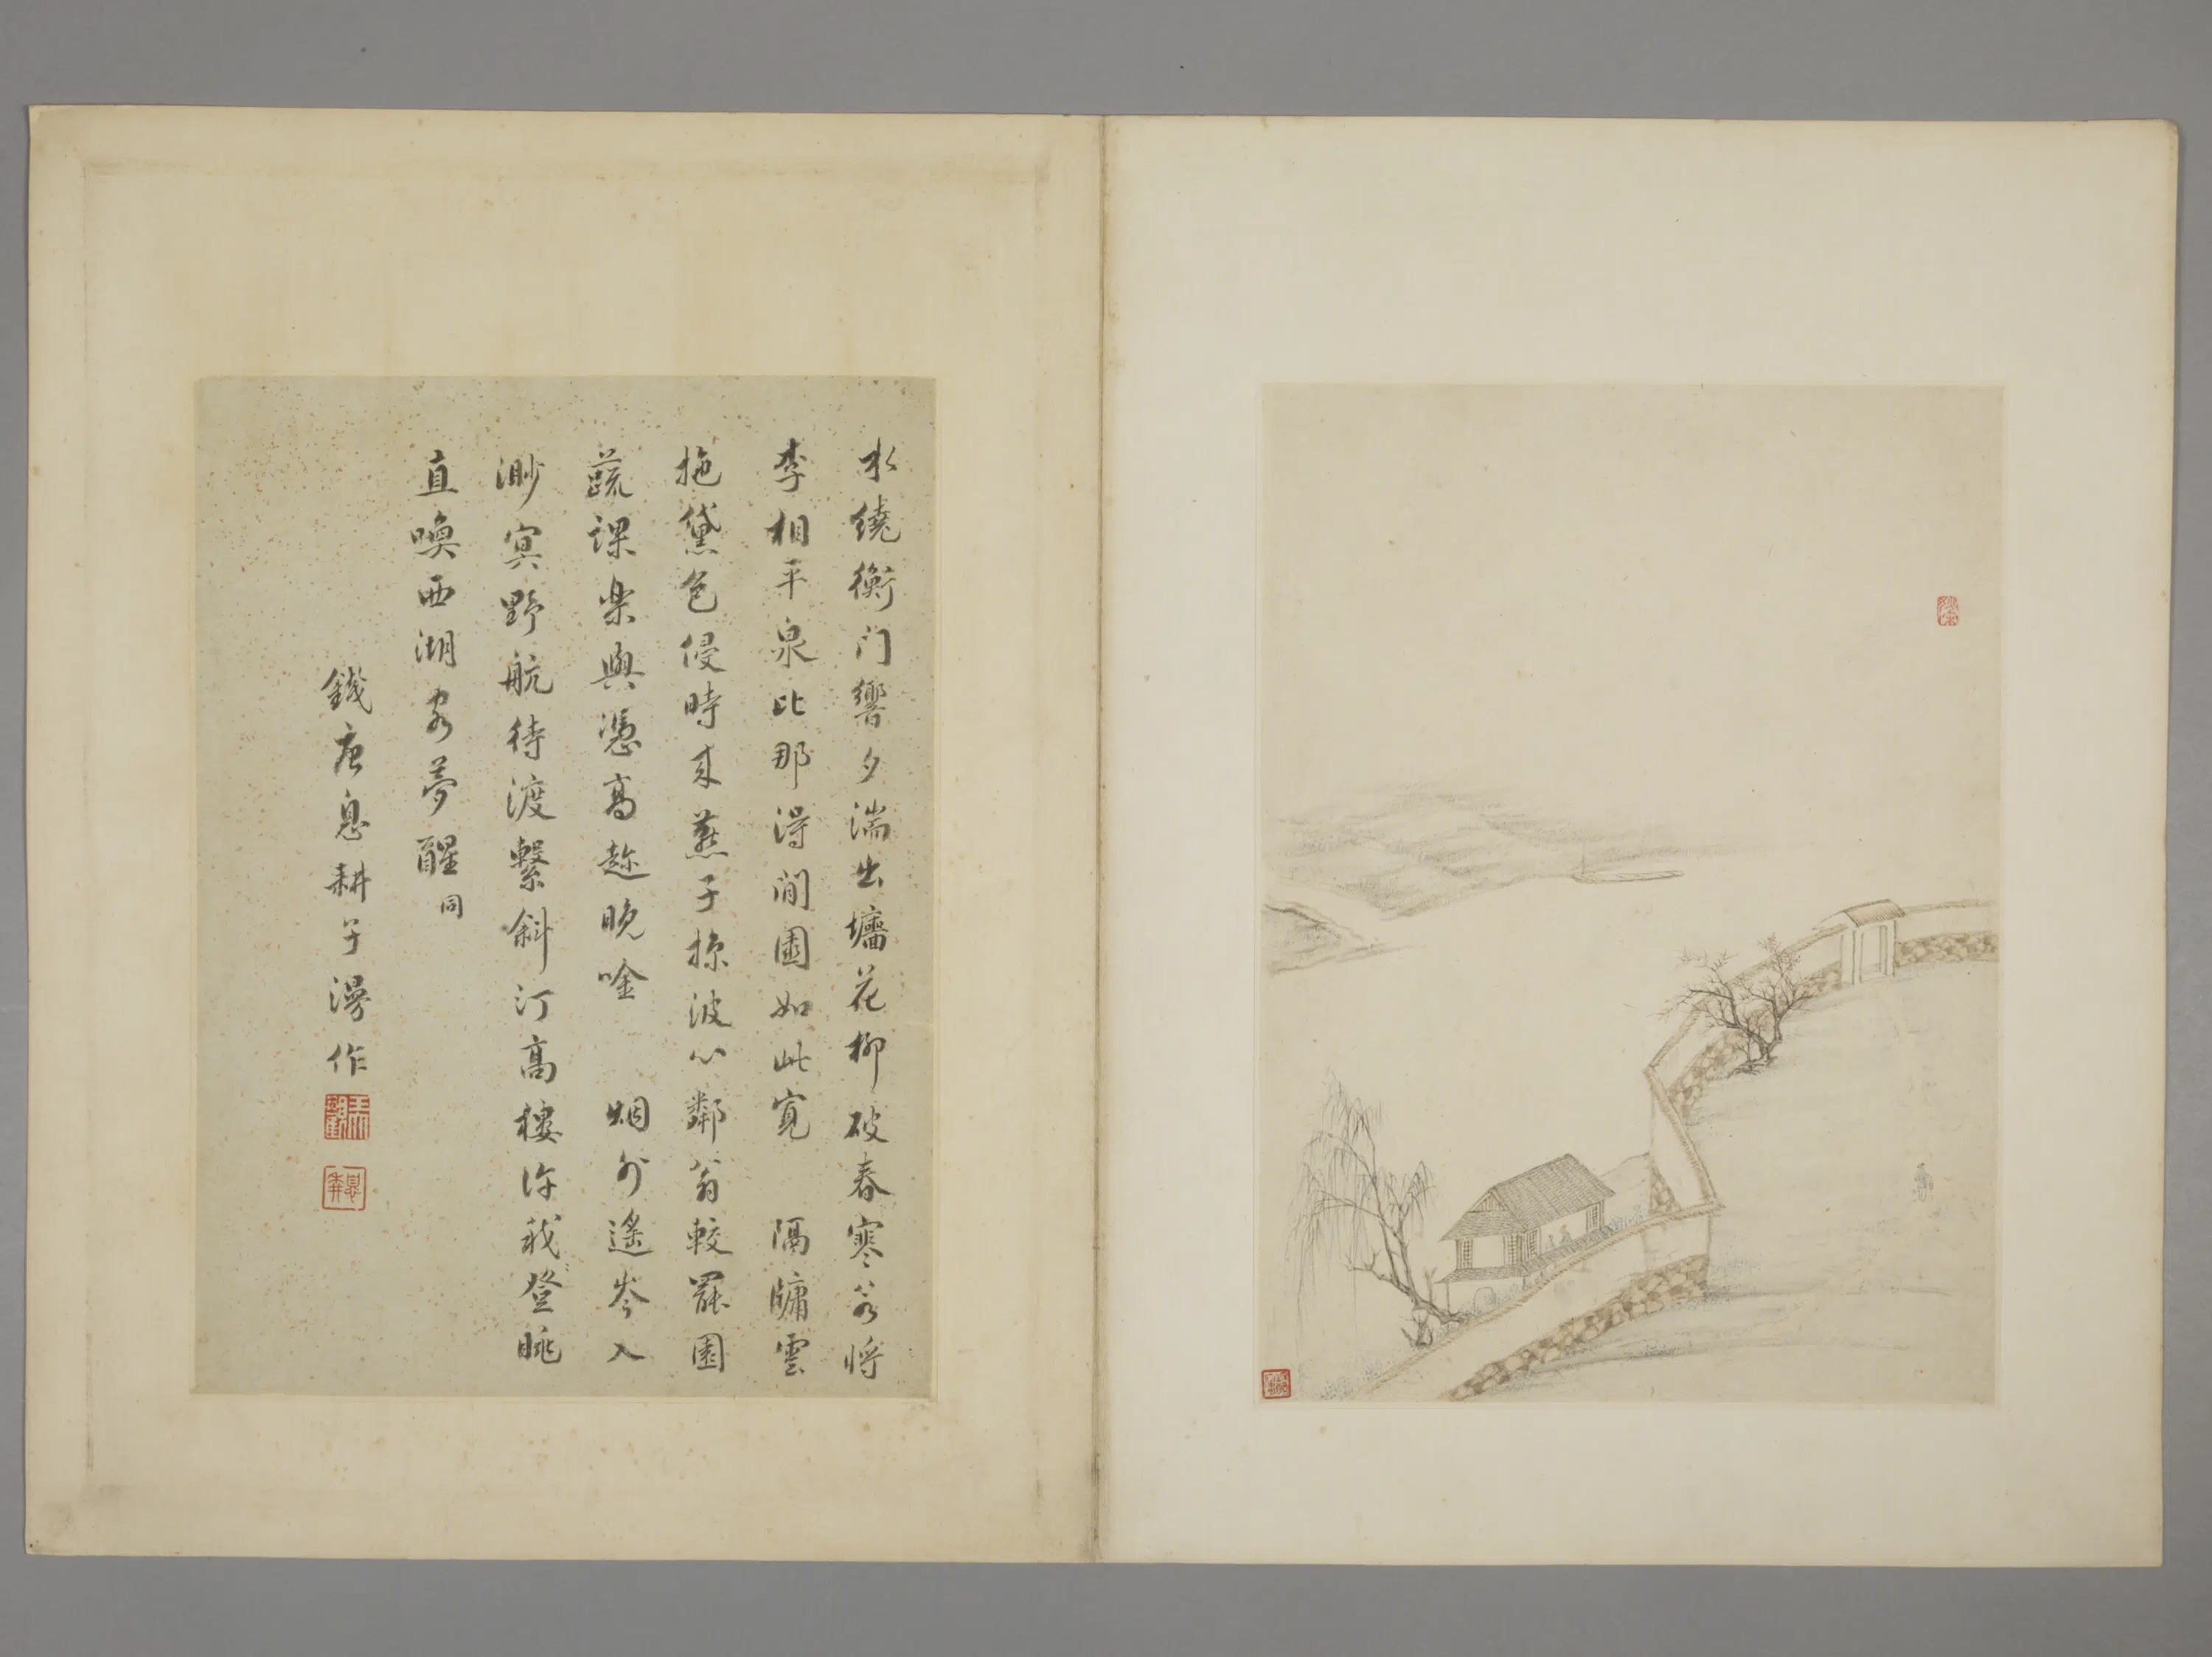 水繞衡門響夕湍出墻花柳破春寒若將
李相平泉比那得閒園如此寬 隔牗雲
拖黛色侵時來燕子掠波心鄰翁較罷園
蔬課樂與憑高趂晚唫 烟外遙岑入
渺冥野航待渡繫斜汀高樓許我登眺
直喚西湖客夢醒同
錢唐息耕子漫作